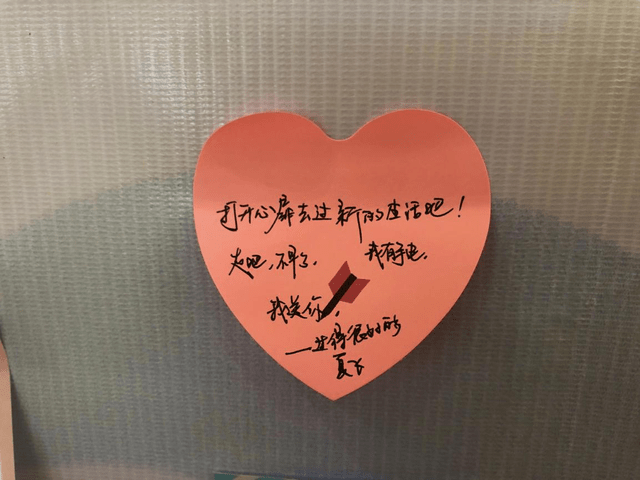 打开心扉去过新的生活吧!
走吧,不早了. 我有手电.
我送你.
一过得很好的
夏